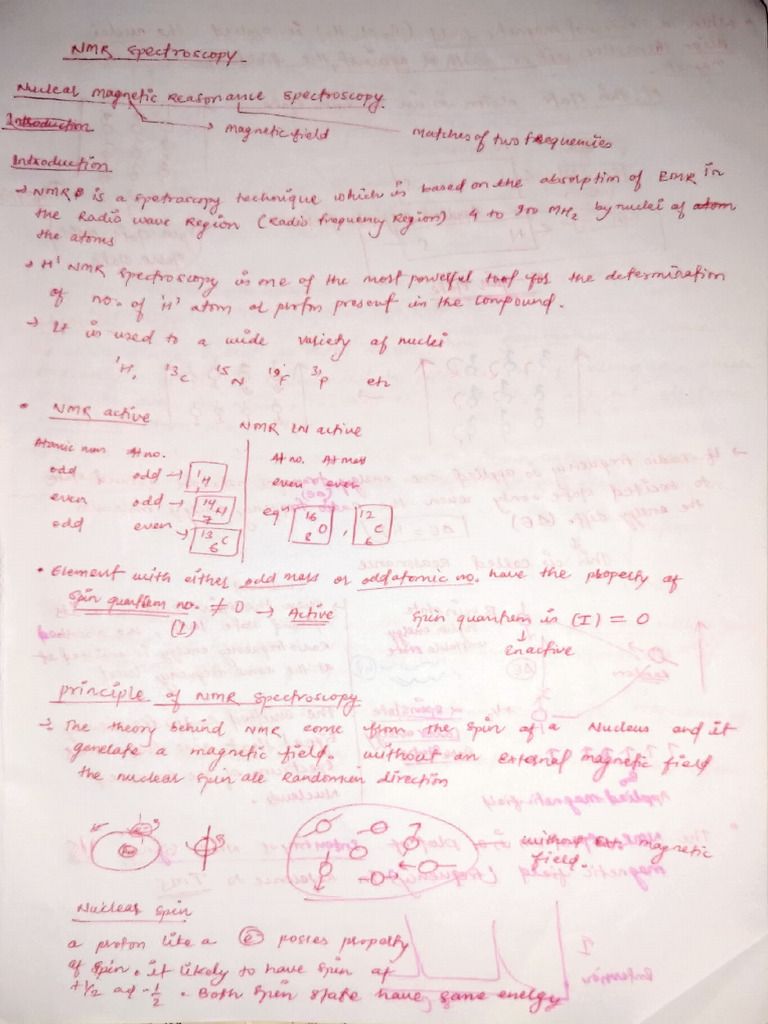 NMR Spectroscopy
Nuclear Magnetic Reasonance Spectroscopy.
Introduction
magnetic field
matches of two frequencies
Introduction
→ NMR is a spetroscopy technique which is based on the absorption of EMR in
the Radio wave Region (Radio frequency Region) 4 to 900 MHz by nuclei of atom
the atoms
→ H' NMR spectroscopy is one of the most powerful tool for the determination
of no. of 'H' atom or proton present in the compound.
→ It is used to a wide variety of nuclei
¹H, ¹³C ¹⁵N ¹⁹F ³¹P etc
• NMR active
NMR In active
Atomic mass At no.
At no. At mass
odd odd → ¹H
even even
even odd → ¹⁴₇N
egⁿ ¹⁶₈O , ¹²₆C
odd even → ¹³₆C
• Element with either odd mass or odd atomic no. have the property of
spin quantum no. ≠ 0 → Active
(I)
spin quantum is (I) = 0
↓
Enactive
principle of NMR spectroscopy
→ The theory behind NMR come from the spin of a Nucleus and it
generate a magnetic field. without an external magnetic field
the nuclear spin are Random in direction
without magnetic
field.
Nuclear Spin
a proton like a e⁻ posses property
of spin. it likely to have spin of
+1/2 ad -1/2. Both spin state have same energy